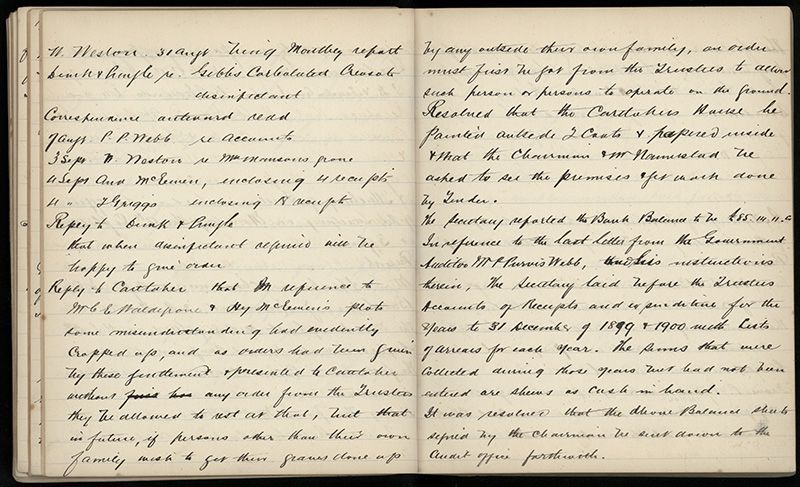 W. Weston 31 Augt being Monthly report
Dunk & Pringle re. Gibbs Carbolated Creosote
disinfectant
Correspondence outward read
7 Augt P. P. Webb re Accounts
3 Sept W. Weston re Mrs Hansons grave
4 Sept And McEewen, enclosing 4 receipts
4 " J Griggs enclosing 1 receipt
Reply to Dunk & Pringle
that when disinfectant required will be
happy to give order
Reply to Caretaker that In reference to
Mr C. E. Waldegrove & Hy McEewen's plots
some misunderstanding had evidently
Cropped up, and as orders had been given
by these gentlemen & presented to Caretaker
without any order from the Trustees
they be allowed to rest at that, but that
in future, if persons other than their own
family wish to get their graves done up
by any outside their own family, an order
must first be got from the Trustees to allow
such person or persons to operate on the ground.
Resolved that the Caretakers House be
Painted outside 2 Coats & papered inside
& that the Chairman & Mr be
asked to see the premises & get work done
by Tender.
The Secretary reported the Bank Balance to be £85.
In reference to the last letter from the Government
Auditor Mr P. Purvis Webb, and his instructions
therein, The Secretary laid before the Trustees
Accounts of Receipts and expenditure for the
Years to 31 December of 1899 & 1900 with Lists
of arrears for each year. The sums that were
Collected during those years but had not been
entered are shewn as Cash in hand.
It was resolved that the above Balance sheets
signed by the Chairman be sent down to the
Audit office forthwith.